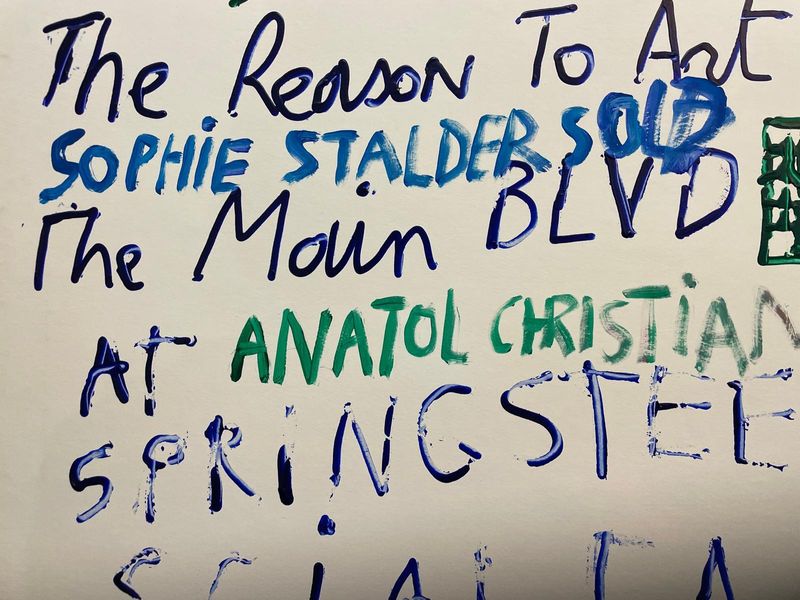 The Reason To Art
SOPHIE STALDER SOLD
The Main BLVD
AT ANATOL CHRISTIAN
SPRINGSTEE